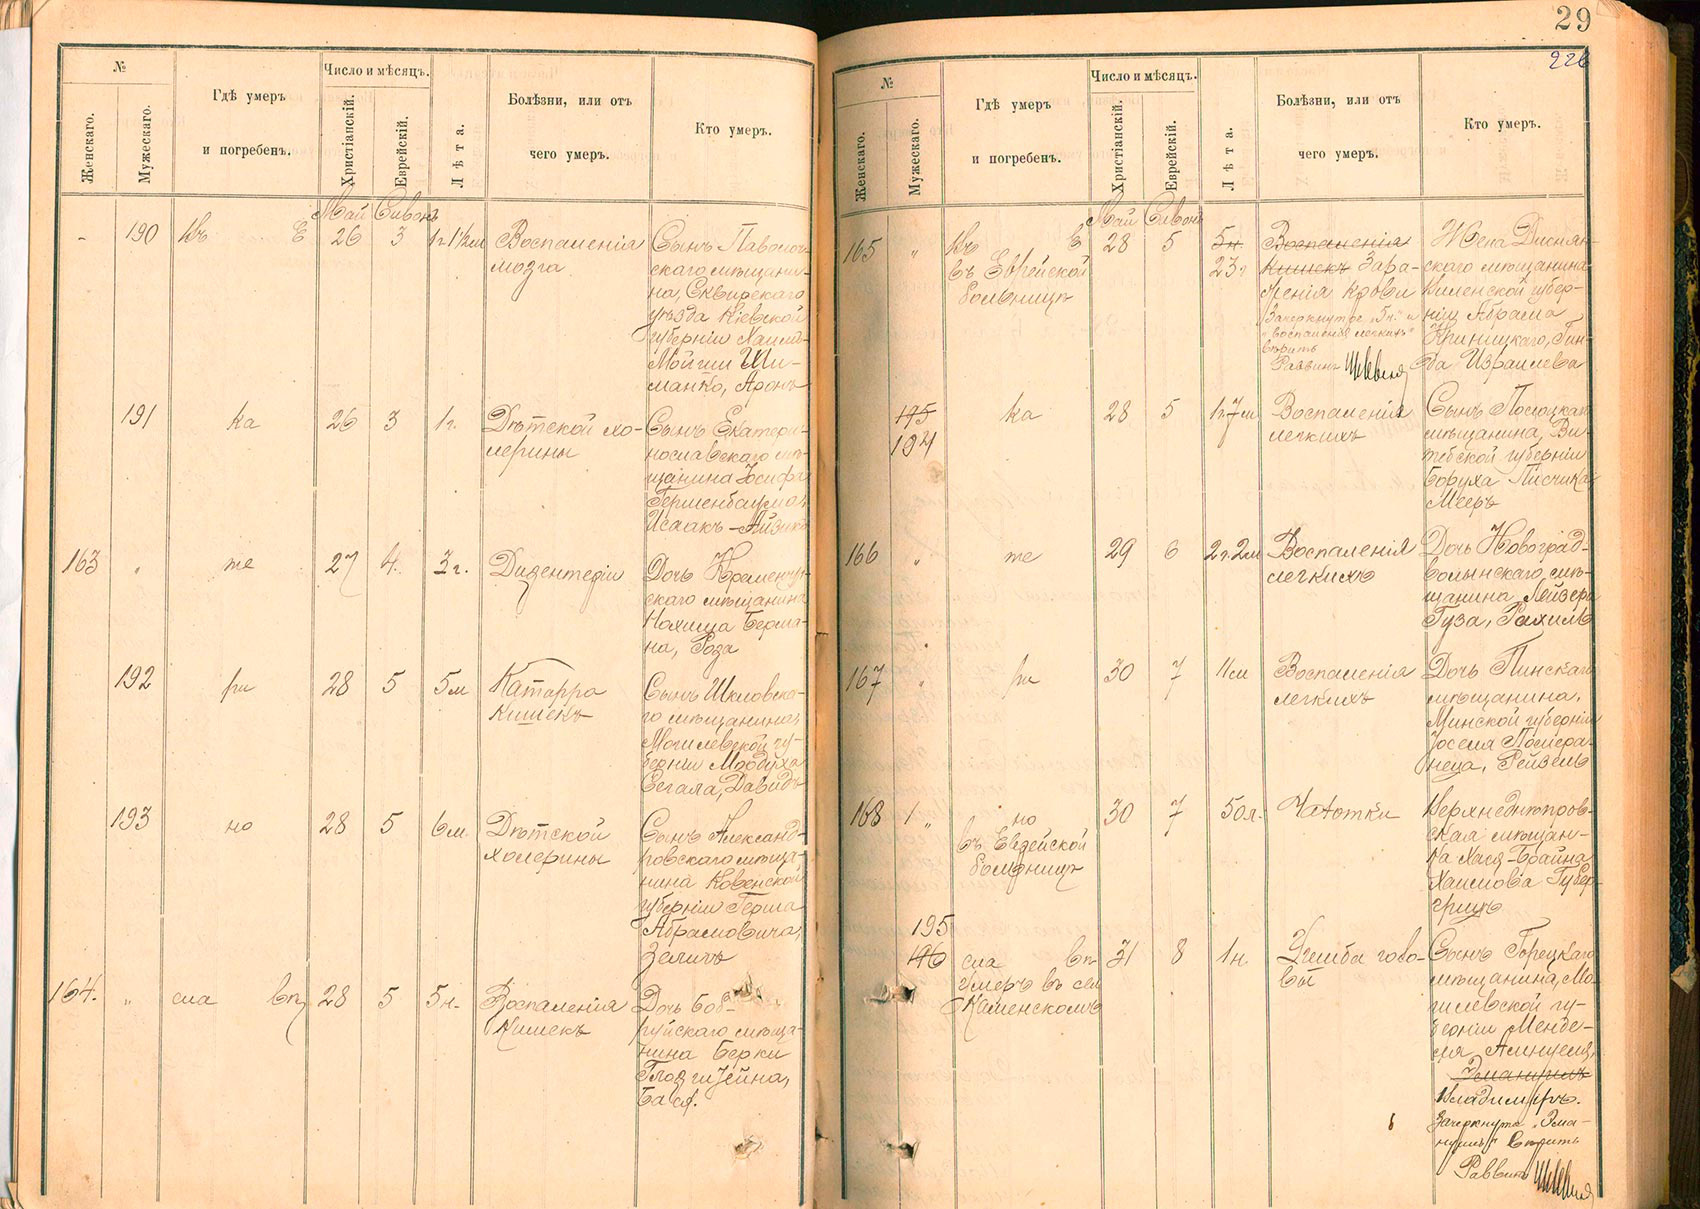 №
Женскаго.
Мужескаго.
Гдѣ умеръ
и погребенъ.
Число и мѣсяцъ.
Христіанскій.
Еврейскій.
Лѣта.
Болѣзни, или отъ
чего умеръ.
Кто умеръ.
Май Сивонъ
- 190 Въ Е 26 3 1г 1½м Воспаленія
мозга
Сынъ Паволоч-
скаго мѣщани-
на, Сквирскаго
уѣзда Кіевской
губерніи Хаимъ-
Мойши Ши-
манко, Аронъ
191 ка 26 3 1г. Дѣтской хо-
лерины
Сынъ Екатери-
нославскаго мѣ-
щанина Іосифа
Гершенбаума,
Исаакъ-Айзикъ
163 " те 27 4. 3г. Дизентеріи
Дочь Кременчуг-
скаго мѣщанина
Нохима Берма-
на, Роза
192 ри 28 5 5м Катарра
кишекъ
Сынъ Шкловска-
го мѣщанина,
Могилевской гу-
берніи Мордуха
Сегала, Давидъ
193 но 28 5 6м. Дѣтской
холерины
Сынъ Александ-
ровскаго мѣща-
нина Ковенской
губерніи Герша
Абрамовича,
Зеликъ
164. " сла въ 28 5 5н. Воспаленія
кишекъ
Дочь Боб-
руйскаго мѣща-
нина Берки
Бася.
29
226
№
Женскаго.
Мужескаго.
Гдѣ умеръ
и погребенъ.
Число и мѣсяцъ.
Христіанскій.
Еврейскій.
Лѣта.
Болѣзни, или отъ
чего умеръ.
Кто умеръ.
Май Сивонъ
165 " Въ Е 28 5 5н
23г
въ Еврейской
больницѣ
Воспаленія
кишекъ Зара-
женія крови
Зачеркнутое "5н." и
"Воспаленія легкихъ"
вѣрить
Раввинъ
Жена Диснян-
скаго мѣщанина
Виленской губер-
ніи Абрама
Криницкаго, Гин-
да Израилева
195
194 ка 28 5 1г 7м Воспаленія
легкихъ
Сынъ Полоцкаго
мѣщанина, Ви-
тебской губерніи
Боруха Писчика,
Мееръ
166 " те 29 6 2г. 2м Воспаленія
легкихъ
Дочь Новоград-
волынскаго мѣ-
щанина Лейзера
Гуза, Рахиль
167 " ри 30 7 11м Воспаленія
легкихъ
Дочь Пинскаго
мѣщанина,
Минской губерніи
Іоселя Помера-
неца, Рейзель
168 1 " но 30 7 50л. Чахотки
въ Еврейской
больницѣ
Верхнеднѣпров-
ская мѣщан-
ка Хася-Брайна
Хаимова Губер-
грицъ
195
196 сла въ 31 8 1н.
Умеръ въ селѣ
Каменскомъ
Ушиба голо-
вы
Сынъ Горецкаго
мѣщанина, Мо-
гилевской гу-
берніи Менде-
ля
Эмануилъ
Владиміръ.
Зачеркнутое "Эма-
нуилъ" вѣрить
Раввинъ